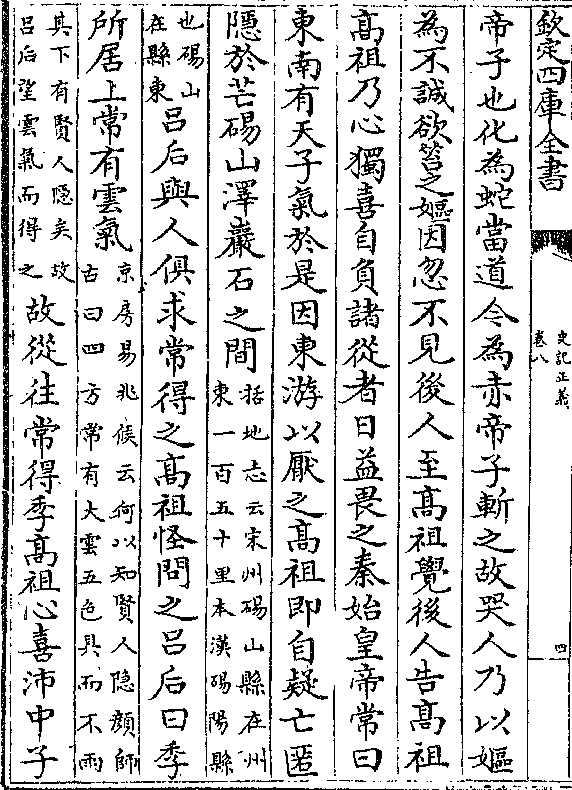 欽定四庫全書
史記正義
卷八
四
帝子也化為蛇當道今為赤帝子斬之故哭人乃以嫗
為不誠欲笞之嫗因忽不見後人至髙祖覺後人告髙祖
髙祖乃心獨喜自負諸從者日益畏之秦始皇帝常曰
東南有天子氣於是因東游以厭之髙祖即自疑亡匿
隱於芒碭山澤巖石之間
括地志云宋州碭山縣在州
東一百五十里本漢碭陽縣
也碭山
在縣東
吕后與人俱求常得之髙祖怪問之吕后曰季
所居上常有雲氣
京房易兆候云何以知賢人隐顔師
古曰四方常有大雲五色具而不雨
其下有賢人隐矣故
吕后望雲氣而得之
故從往常得季髙祖心喜沛中子